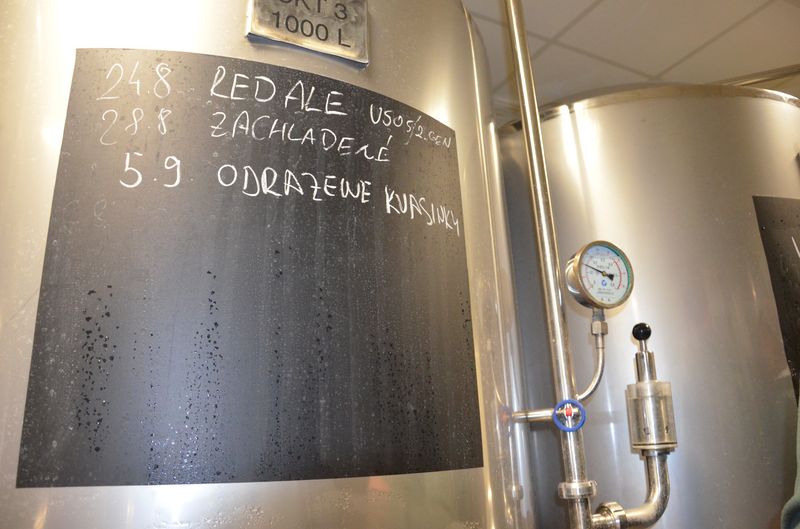 CKT 3
1000 L
24.8 RED ALE US05/2.GEN
28.8 ZACHLADENÉ
5.9 ODRAZENE KVASINKY